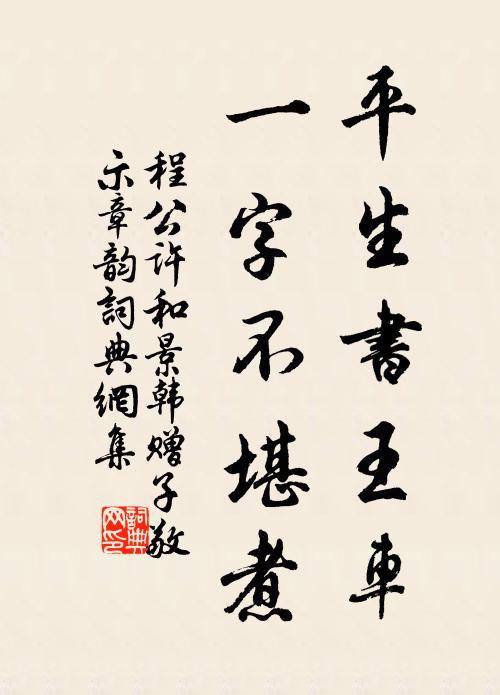 平生書五車
一字不堪煮
程公许和景韩赠子敬
示章韵詞典網集
詞典网印